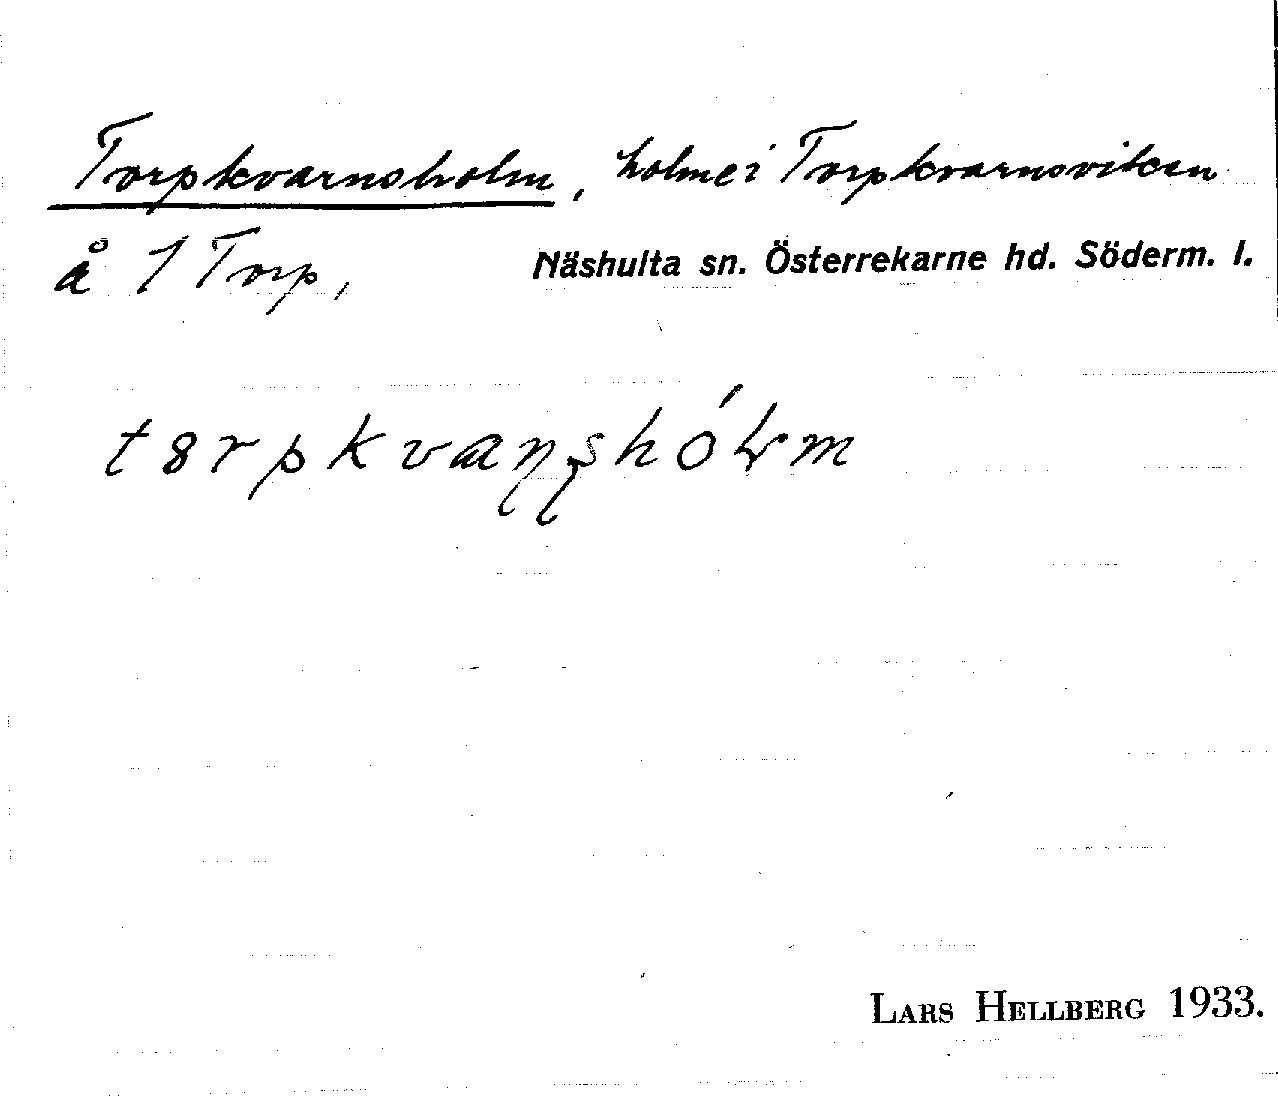 Torpkvarnsholm, holme i Torpkvarnsviken
å 1 Torp, Näshulta sn. Österrekarne hd. Söderm. l.
LARS HELLBERG 1933.